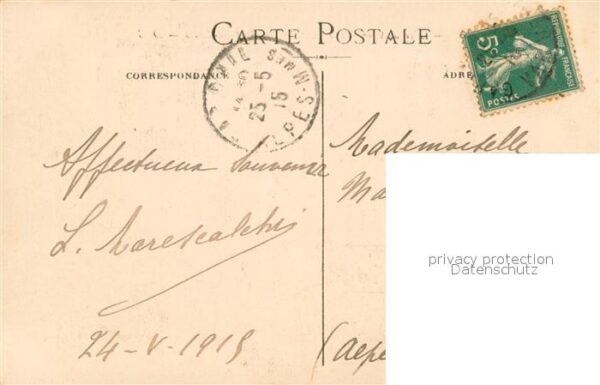 CARTE POSTALE
CORRESPONDANCE
ADRE
5c
POSTES
FRANÇAISE
25-5
15
ALPES MMES
Affectueux Souvenir
L. Marescalchi
24-V-1915
Mademoiselle
Ma
privacy protection
Datenschutz
(Alpe